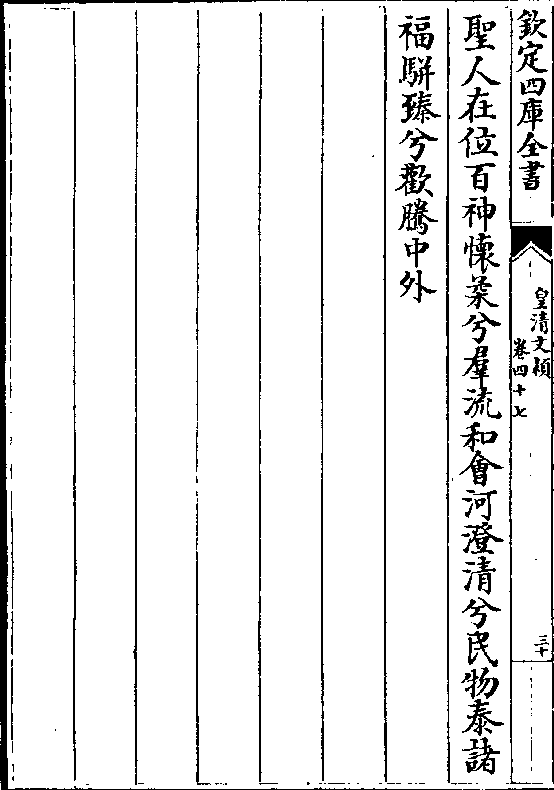 欽定四庫全書
皇清文頴
卷四十七
三十
聖人在位百神懷柔兮羣流和會河澄清兮民物泰諸
福駢臻兮歡騰中外